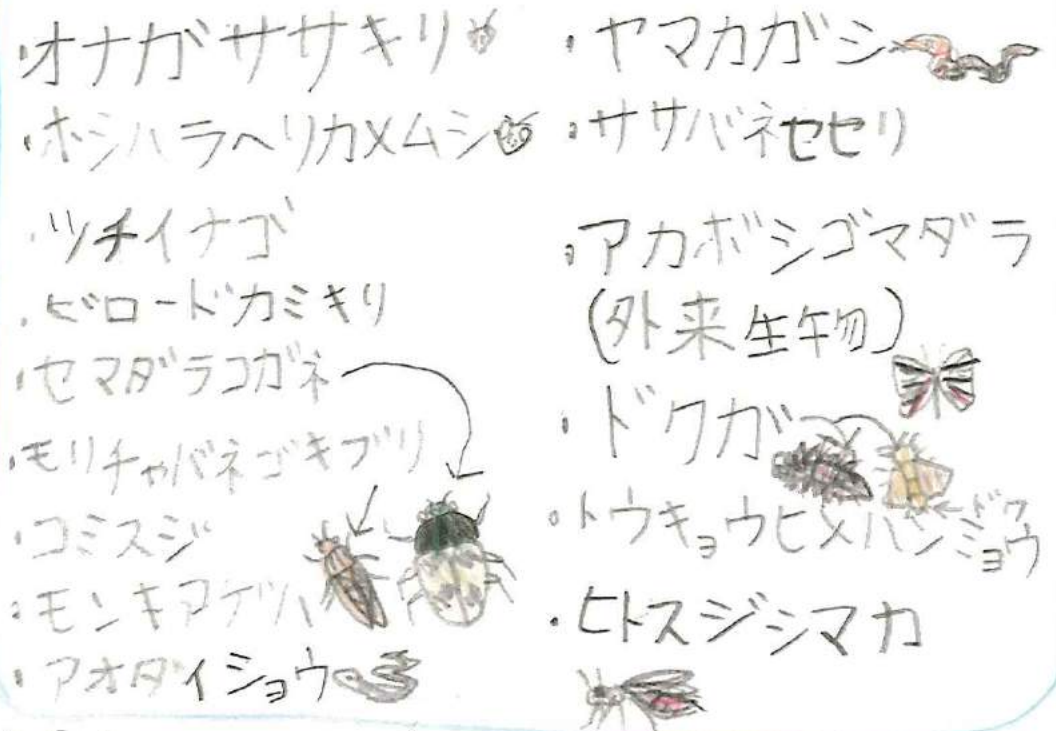 ・オナガササキリ
・ホシハラヘリカメムシ
・ツチイナゴ
・ビロードカミキリ
・セマダラコガネ
・モリチャバネゴキブリ
・コミスジ
・モンキアゲハ
・アオダイショウ
・ヤマカガシ
・ササバネセセリ
・アカボシゴマダラ
(外来生物)
・ドクガ
ドク
・トウキョウヒメハンミョウ
・ヒトスジシマカ